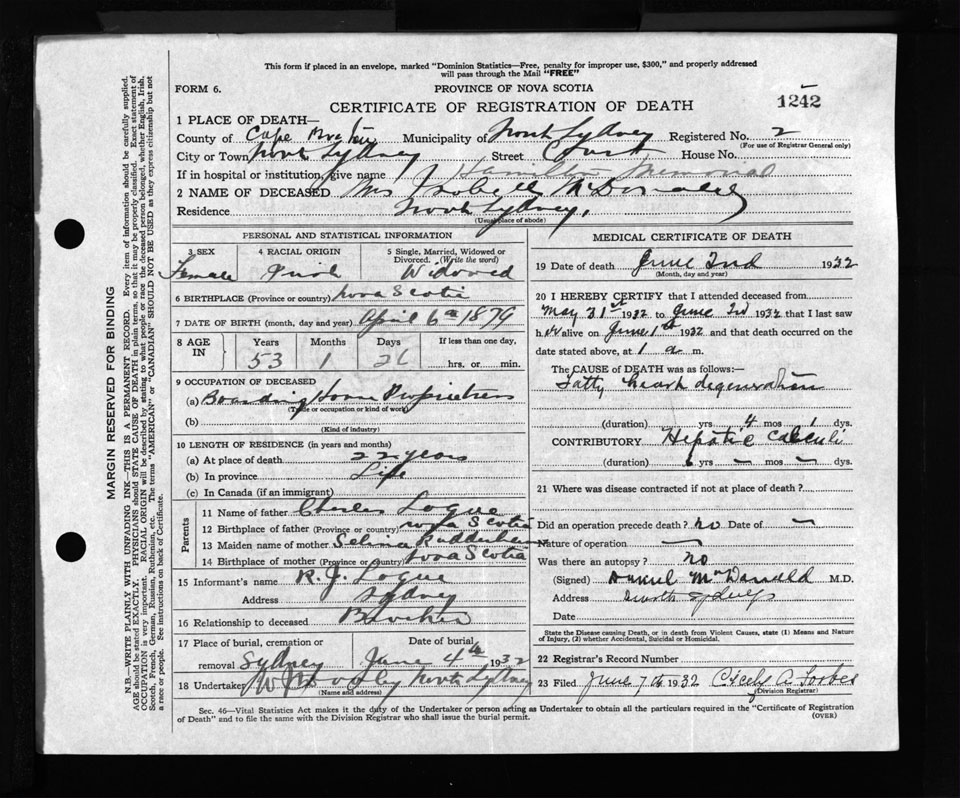 This form if placed in an envelope, marked "Dominion Statistics—Free, penalty for improper use, $300," and properly addressed
will pass through the Mail "FREE"
FORM 6.
PROVINCE OF NOVA SCOTIA
CERTIFICATE OF REGISTRATION OF DEATH
1242
1 PLACE OF DEATH—
County of Cape Breton Municipality of North Sydney Registered No. 2
(For use of Registrar General only)
City or Town North Sydney Street Court House No.
If in hospital or institution, give name Hamilton Memorial
2 NAME OF DECEASED Mrs Isobell McDonald
Residence North Sydney.
(Usual place of abode)
PERSONAL AND STATISTICAL INFORMATION
3 SEX 4 RACIAL ORIGIN 5 Single, Married, Widowed or
Divorced. (Write the word)
Female Irish Widowed
6 BIRTHPLACE (Province or country) Nova Scotia
7 DATE OF BIRTH (month, day and year) April 6th 1879
8 AGE IN Years Months Days If less than one day,
53 1 26 hrs. or min.
9 OCCUPATION OF DECEASED
(a) Boarding House Proprietress
(Trade or occupation or kind of work)
(b)
(Kind of industry)
10 LENGTH OF RESIDENCE (in years and months)
(a) At place of death 22 years
(b) In province Life
(c) In Canada (if an immigrant)
Parents
11 Name of father Charles Logue
12 Birthplace of father (Province or country) Nova Scotia
13 Maiden name of mother Selina Rudderham
14 Birthplace of mother (Province or Country) Nova Scotia
15 Informant's name R. J. Logue
Address Sydney
16 Relationship to deceased Brother
17 Place of burial, cremation or Date of burial
removal Sydney June 4th 1932
18 Undertaker North Sydney
(Name and address)
MEDICAL CERTIFICATE OF DEATH
19 Date of death June 2nd 1932
(Month, day and year)
20 I HEREBY CERTIFY that I attended deceased from
May 31st 1932 to June 2d 1932 that I last saw
h er alive on June 1st 1932 and that death occurred on the
date stated above, at 1 a m.
The CAUSE of DEATH was as follows:—
Fatty heart degeneration
(duration) yrs 4 mos 1 dys.
CONTRIBUTORY Hepatic Calculi
(duration) 6 yrs — mos — dys.
21 Where was disease contracted if not at place of death?
Did an operation precede death? no Date of —
Nature of operation —
Was there an autopsy? no
(Signed) Daniel McDonald M.D.
Address North Sydney
Date
State the Disease causing Death, or in death from Violent Causes, state (1) Means and Nature
of Injury, (2) whether Accidental, Suicidal or Homicidal.
22 Registrar's Record Number
23 Filed June 7th 1932 Cicely A. Forbes
(Division Registrar)
Sec. 46—Vital Statistics Act makes it the duty of the Undertaker or person acting as Undertaker to obtain all the particulars required in the "Certificate of Registration
of Death" and to file the same with the Division Registrar who shall issue the burial permit.
(OVER)
MARGIN RESERVED FOR BINDING
N.B.—WRITE PLAINLY WITH UNFADING INK—THIS IS A PERMANENT RECORD. Every item of information should be carefully supplied.
AGE should be stated EXACTLY. PHYSICIANS should STATE CAUSE OF DEATH in plain terms, so that it may be properly classified. Exact statement of
OCCUPATION is very important. RACIAL ORIGIN will be described by stating to what people or race the deceased person belonged, whether English, Irish,
Scotch, French, German, Russian, Ruthenian, etc. The terms "AMERICAN" or "CANADIAN" SHOULD NOT BE USED as they express citizenship but not
a race or people. See instructions on back of Certificate.